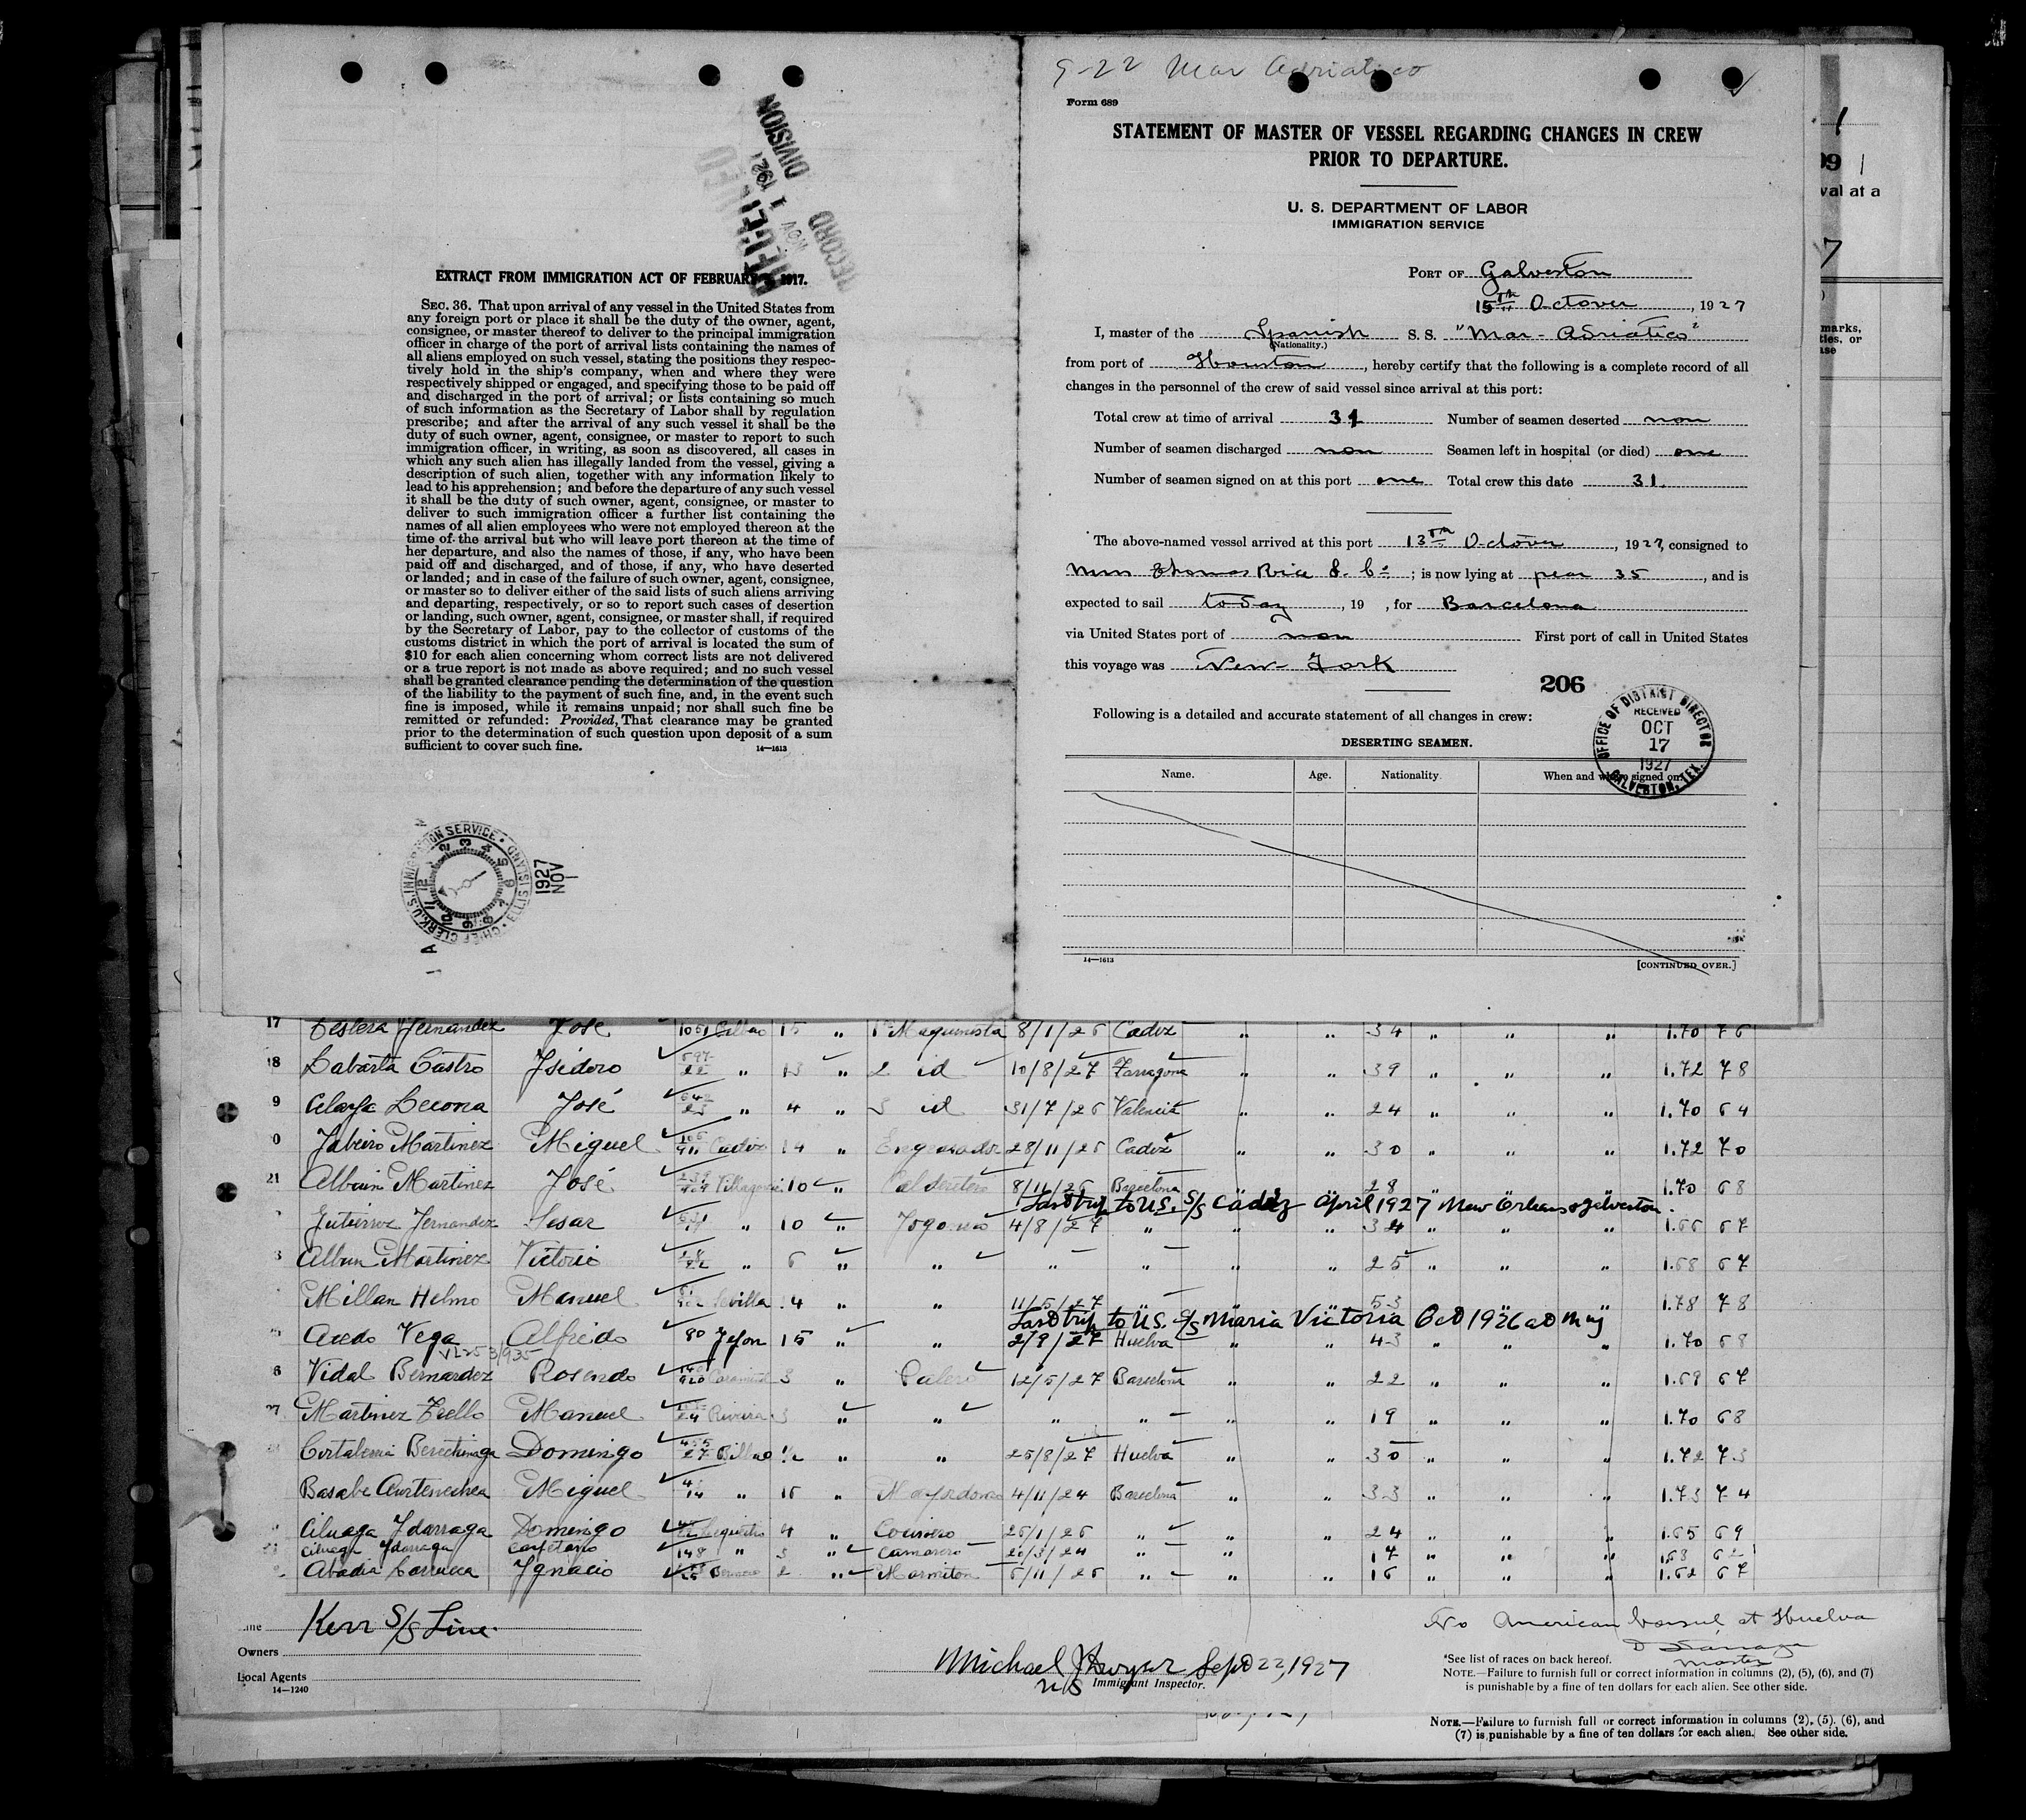 9-22 Mar Adriatico
Form 689
STATEMENT OF MASTER OF VESSEL REGARDING CHANGES IN CREW
PRIOR TO DEPARTURE.
U. S. DEPARTMENT OF LABOR
IMMIGRATION SERVICE
PORT OF Galveston
15th Octover, 1927
I, master of the Spanish S. S. "Mar-Adriatico"
(Nationality.)
from port of Houston, hereby certify that the following is a complete record of all
changes in the personnel of the crew of said vessel since arrival at this port:
Total crew at time of arrival 31 Number of seamen deserted non
Number of seamen discharged non Seamen left in hospital (or died) one
Number of seamen signed on at this port one Total crew this date 31.
The above-named vessel arrived at this port 13th Octover, 1927, consigned to
Thomas Rice & Co; is now lying at pear 35, and is
expected to sail today, 19 , for Barcelona
via United States port of non First port of call in United States
this voyage was New-York
206
OFFICE OF DISTRICT DIRECTOR
RECEIVED
OCT
17
1927
GALVESTON, TEX.
Following is a detailed and accurate statement of all changes in crew:
DESERTING SEAMEN.
Name. Age. Nationality. When and where signed on.
14—1613 [CONTINUED OVER.]
RECORD DIVISION
NOV 1 192
EXTRACT FROM IMMIGRATION ACT OF FEBRUARY 1917.
SEC. 36. That upon arrival of any vessel in the United States from
any foreign port or place it shall be the duty of the owner, agent,
consignee, or master thereof to deliver to the principal immigration
officer in charge of the port of arrival lists containing the names of
all aliens employed on such vessel, stating the positions they respec-
tively hold in the ship's company, when and where they were
respectively shipped or engaged, and specifying those to be paid off
and discharged in the port of arrival; or lists containing so much
of such information as the Secretary of Labor shall by regulation
prescribe; and after the arrival of any such vessel it shall be the
duty of such owner, agent, consignee, or master to report to such
immigration officer, in writing, as soon as discovered, all cases in
which any such alien has illegally landed from the vessel, giving a
description of such alien, together with any information likely to
lead to his apprehension; and before the departure of any such vessel
it shall be the duty of such owner, agent, consignee, or master to
deliver to such immigration officer a further list containing the
names of all alien employees who were not employed thereon at the
time of the arrival but who will leave port thereon at the time of
her departure, and also the names of those, if any, who have been
paid off and discharged, and of those, if any, who have deserted
or landed; and in case of the failure of such owner, agent, consignee,
or master so to deliver either of the said lists of such aliens arriving
and departing, respectively, or so to report such cases of desertion
or landing, such owner, agent, consignee, or master shall, if required
by the Secretary of Labor, pay to the collector of customs of the
customs district in which the port of arrival is located the sum of
$10 for each alien concerning whom correct lists are not delivered
or a true report is not made as above required; and no such vessel
shall be granted clearance pending the determination of the question
of the liability to the payment of such fine, and, in the event such
fine is imposed, while it remains unpaid; nor shall such fine be
remitted or refunded: Provided, That clearance may be granted
prior to the determination of such question upon deposit of a sum
sufficient to cover such fine. 14—1613
CHIEF CLERK U.S. IMMIGRATION SERVICE ELLIS ISLAND
1927 NOV 1
17 Fernandez José 1051 Bilbao 15 " 1º Maquinista 8/1/26 Cadiz " " 34 " " " 1.70 76
18 Labarta Castro Isidoro " 13 " 2 id 10/8/27 Tarragona " " 39 " " " 1.72 78
9 José " 4 " 3 id 31/7/26 Valencia " " 24 " " " 1.70 64
0 Martinez Miguel Cadiz 14 " Engrasador 28/11/26 Cadiz " " 30 " " " 1.72 70
21 Albuin Martinez José 10 " Calderetero 8/11/26 Barcelona " " 28 " " " 1.70 68
Last trip to U.S. S/S Cadiz April 1927 New Orleans & Galveston.
Gutierrez Fernandez Cesar " 10 " Fogonero 4/8/27 " " " 34 " " " 1.66 67
3 Albuin Martinez Victorio " 6 " " " " " " 25 " " " 1.68 67
Millan Helmo Manuel Sevilla 14 " " 11/5/27 " " " 53 " " " 1.78 78
Last trip to U.S. S/S Maria Victoria Oct 1926 at N.Y.
Acedo Vega Alfredo 80 Gijon 15 " " 2/9/27 Huelva " " 43 " " " 1.70 68
6 Vidal Bernardez Rosendo 3 " Palero 12/5/27 Barcelona " " 22 " " " 1.69 67
27 Martinez Manuel 3 " " " " " " 19 " " " 1.70 68
Domingo Bilbao " " 25/8/27 Huelva " " 30 " " " 1.72 73
Basabe Aurtenechea Miguel " 15 " Mayordomo 4/11/24 Barcelona " " 33 " " " 1.73 74
Aluaga Ydarraga Domingo 4 " Cocinero 26/1/26 " " " 24 " " " 1.65 69
Aluaga Ydarraga Cayetano 148 " 3 " Camarero 20/3/24 " " " 17 " " " 1.68 62
Abadia Ignacio 2 " Marmiton 5/11/26 " " " 16 " " " 1.62 67
Kerr S/S Line.
Owners
Local Agents
14—1240
Michael J Dwyer Sept 22, 1927
U.S. Immigrant Inspector.
No American Consul at Huelva
Master
*See list of races on back hereof.
NOTE.—Failure to furnish full or correct information in columns (2), (5), (6), and (7)
is punishable by a fine of ten dollars for each alien. See other side.
NOTE.—Failure to furnish full or correct information in columns (2), (5), (6), and
(7) is punishable by a fine of ten dollars for each alien. See other side.